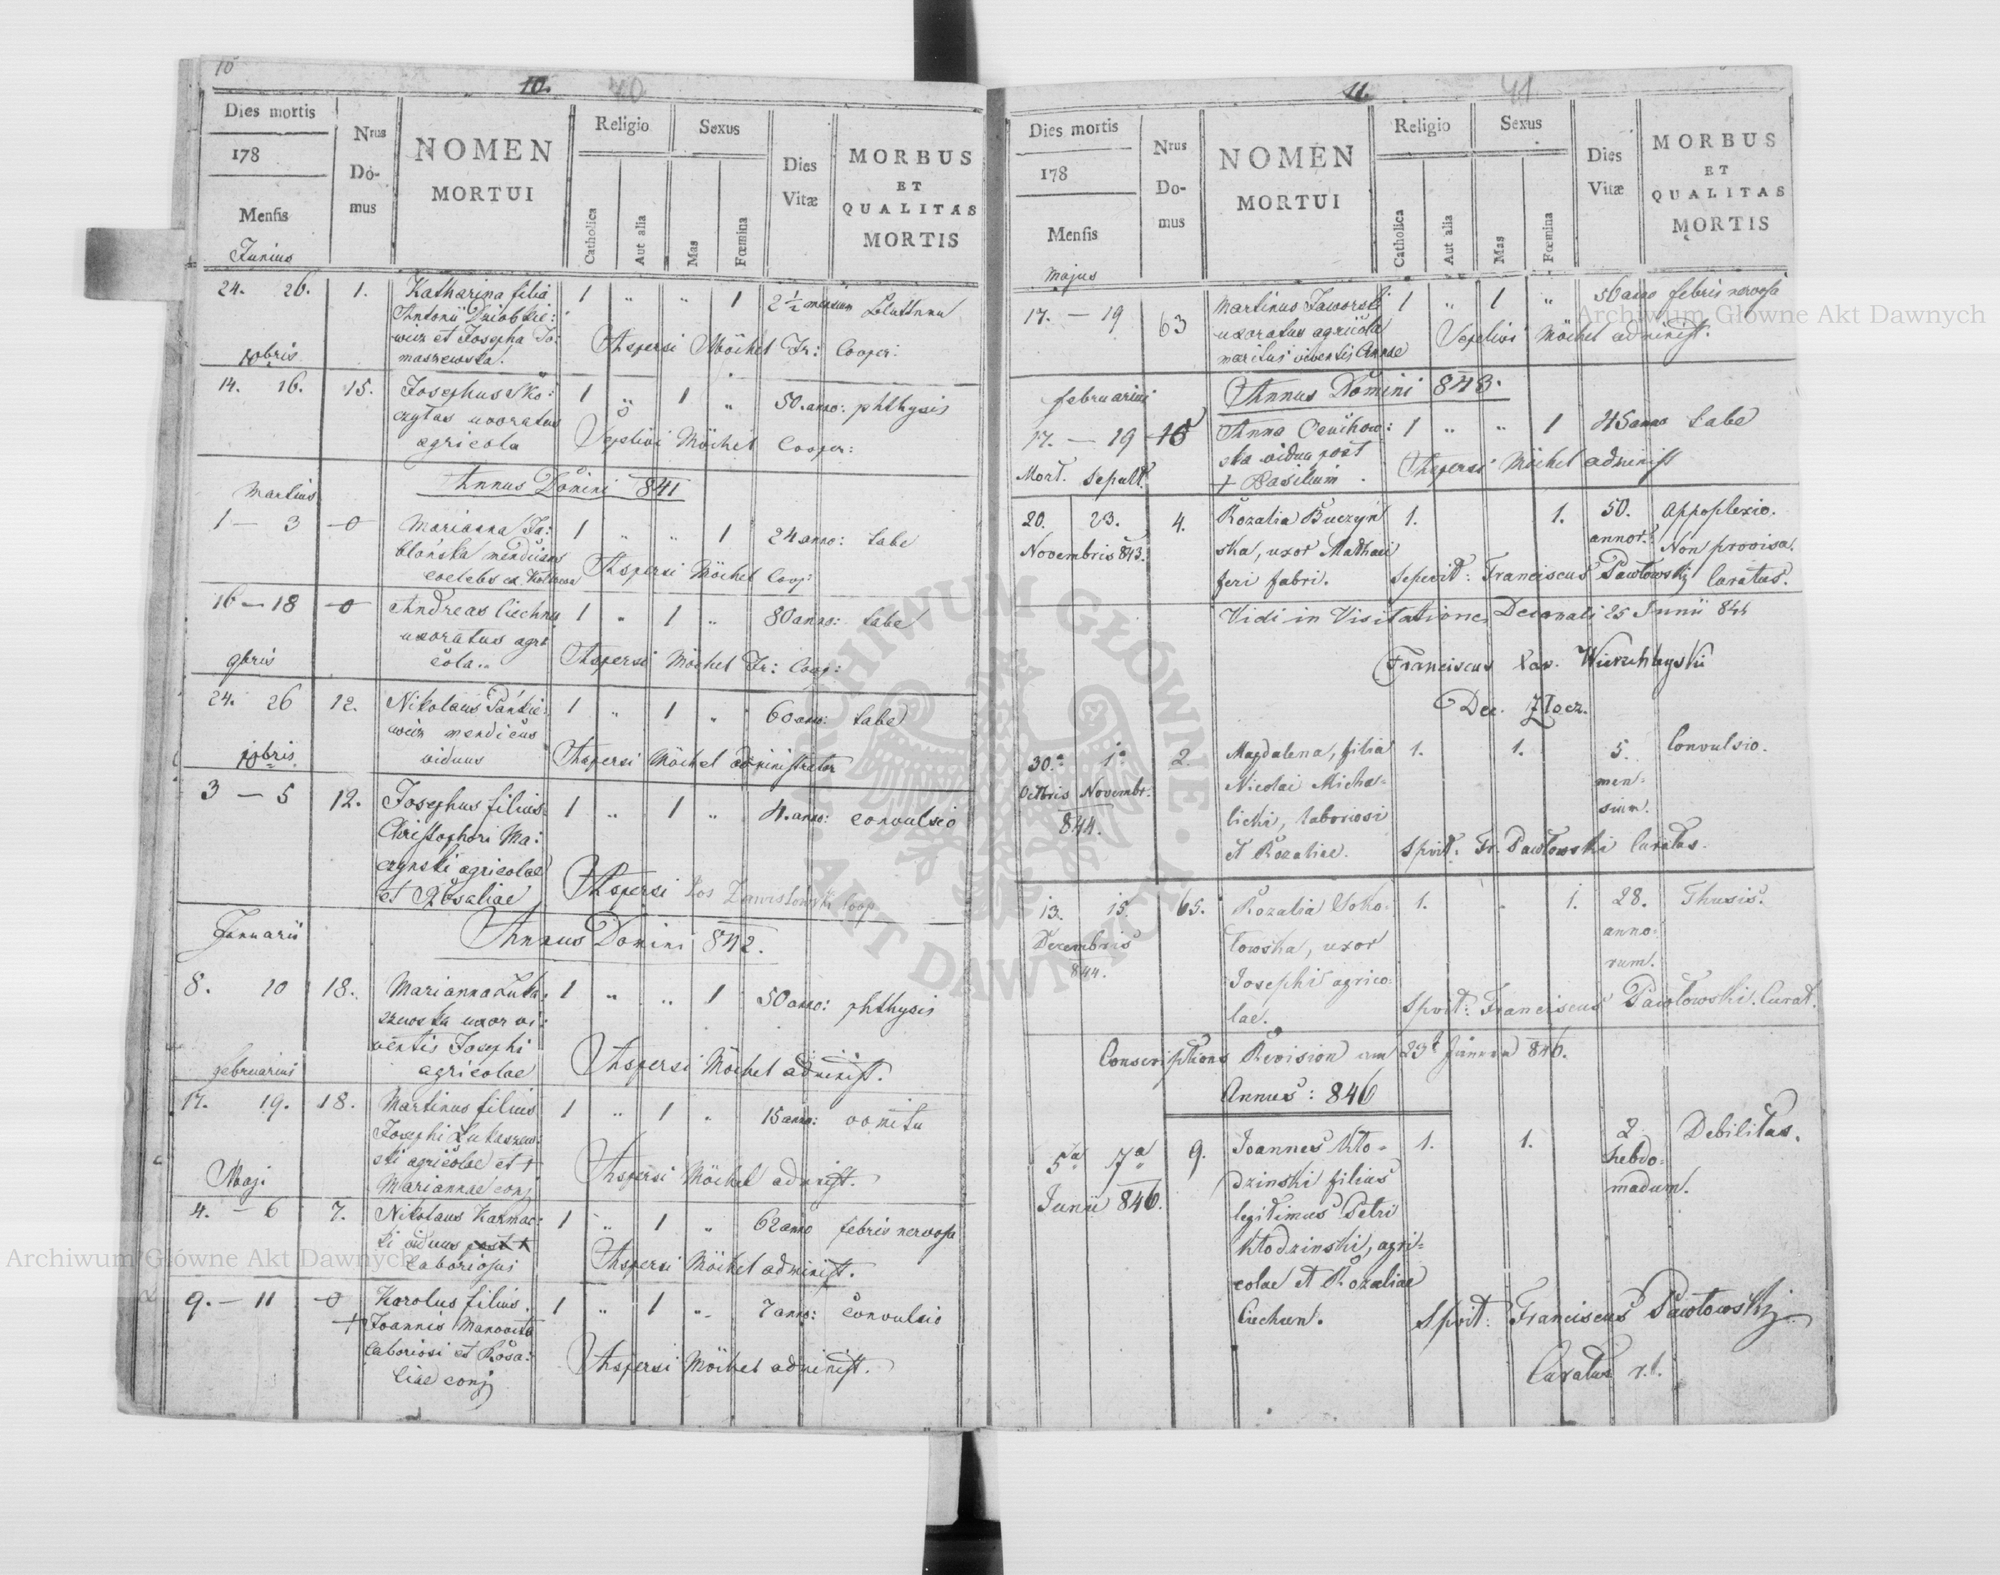 10
10.
40
Dies mortis
178
Mensis
Junius
Nrus
Do-
mus
NOMEN
MORTUI
Religio
Catholica
Aut alia
Sexus
Mas
Fœmina
Dies
Vitæ
MORBUS
ET
QUALITAS
MORTIS
24. 26. 1. Katharina filia 1 " " 1 2 1/2 mensium
Antonii
et Josepha To:
maszewska. Aspersi Möchel Fr: Cooper:
10bris
14. 16. 15. Josephus Sko: 1 " 1 " 50. anno: phthysis
czylas uxoratus
agricola Sepelivi Möchel Cooper:
Annus Domini 841
Martius
1 — 3 —0 Marianna Ja: 1 " " 1 24 anno: tabe
błońska mendicans
coelebs ex Aspersi Möchel Coop:
16 — 18 —0 Andreas Ciechny 1 " 1 " 80 anno: tabe
uxoratus agri
cola.. Aspersi Möchel Fr: Coop:
9bris
24. 26 12. Nikolaus Pańkie: 1 " 1 " 60 ano: tabe
wicz mendicus
viduus Aspersi Möchel administrator
10bris
3 — 5 12. Josephus filius 1 " 1 " 4. anno: convulsio
Christophori Ma:
czynski agricolae
et Rosaliae Aspersi Coop
Annus Domini 842.
Januarii
8. 10 18. Marianna Luka: 1 " " 1 50 anno: phthysis
szewska uxor vi:
ventis Josephi
agricolae Aspersi Möchel administ.
februarius
17. 19. 18. Martinus filius 1 " 1 " 15 anno: vomitu
Josephi Lukaszew:
ski agricolae et +
Mariannae conj Aspersi Möchel administ.
Maji
4. — 6 7. Nikolaus Karnac: 1 " 1 " 62 anno febris nervosa
ki viduus post +
Laboriosus Aspersi Möchel administ.
9. — 11 —0 Karolus filius 1 " 1 " 7 anno: convulsio
+ Joannis
laboriosi et Rosa:
liae conj Aspersi Möchel administ.
11.
41
Dies mortis
178
Mensis
Majus
Nrus
Do-
mus
NOMEN
MORTUI
Religio
Catholica
Aut alia
Sexus
Mas
Fœmina
Dies
Vitæ
MORBUS
ET
QUALITAS
MORTIS
17. — 19 63 Martinus Jaworski 1 " 1 " 56 ano febris nervosa
uxoratus agricola
maritus viventis Annae Sepelivi Möchel administ.
Annus Domini 843.
februarius
17. — 19 15 Anna 1 " " 1 45 anno tabe
ska vidua post
+ Basilium Aspersi Möchel administ
Mort. Sepult.
20. 23. 4. Rozalia Buczyń 1. 1. 50. Appoplexio.
Novembris 843. ska, uxor Mathaei annor: Non provisa.
feri fabri. Sepevit: Franciscus Pawłowski Curatus.
Vidi in Visitatione Decanali 25 Junii 844
Franciscus Xav.
Dec. Złocz.
30.a 1a 2. Magdalena, filia 1. 1. 5. Convulsio.
Octbris Novembr. Nicolai Micha- men-
844. licki, laboriosi sium.
et Rozaliae. Spvit: Fr. Pawłowski Curatus.
13. 15. 65. Rozalia Soko- 1. " 1. 28. Thusis.
Decembris łowska, uxor anno-
844. Josephi agrico- rum.
lae. Spvit: Franciscus Pawłowski. Curat.
Conscriptions Revision am 23t Januar 846.
Annus: 846
5a 7a 9. Joannes Kło- 1. 1. 2 Debilitas.
Junii 846. dzinski filius hebdo-
legitimus Petri madum.
Kłodzinski, agri-
colae et Rozaliae
Ciechun. Spvit: Franciscus Pawłowski
Curatus r.l.
Archiwum Główne Akt Dawnych
Archiwum Główne Akt Dawnych
ARCHIWUM GŁÓWNE · AKT DAWNYCH ·